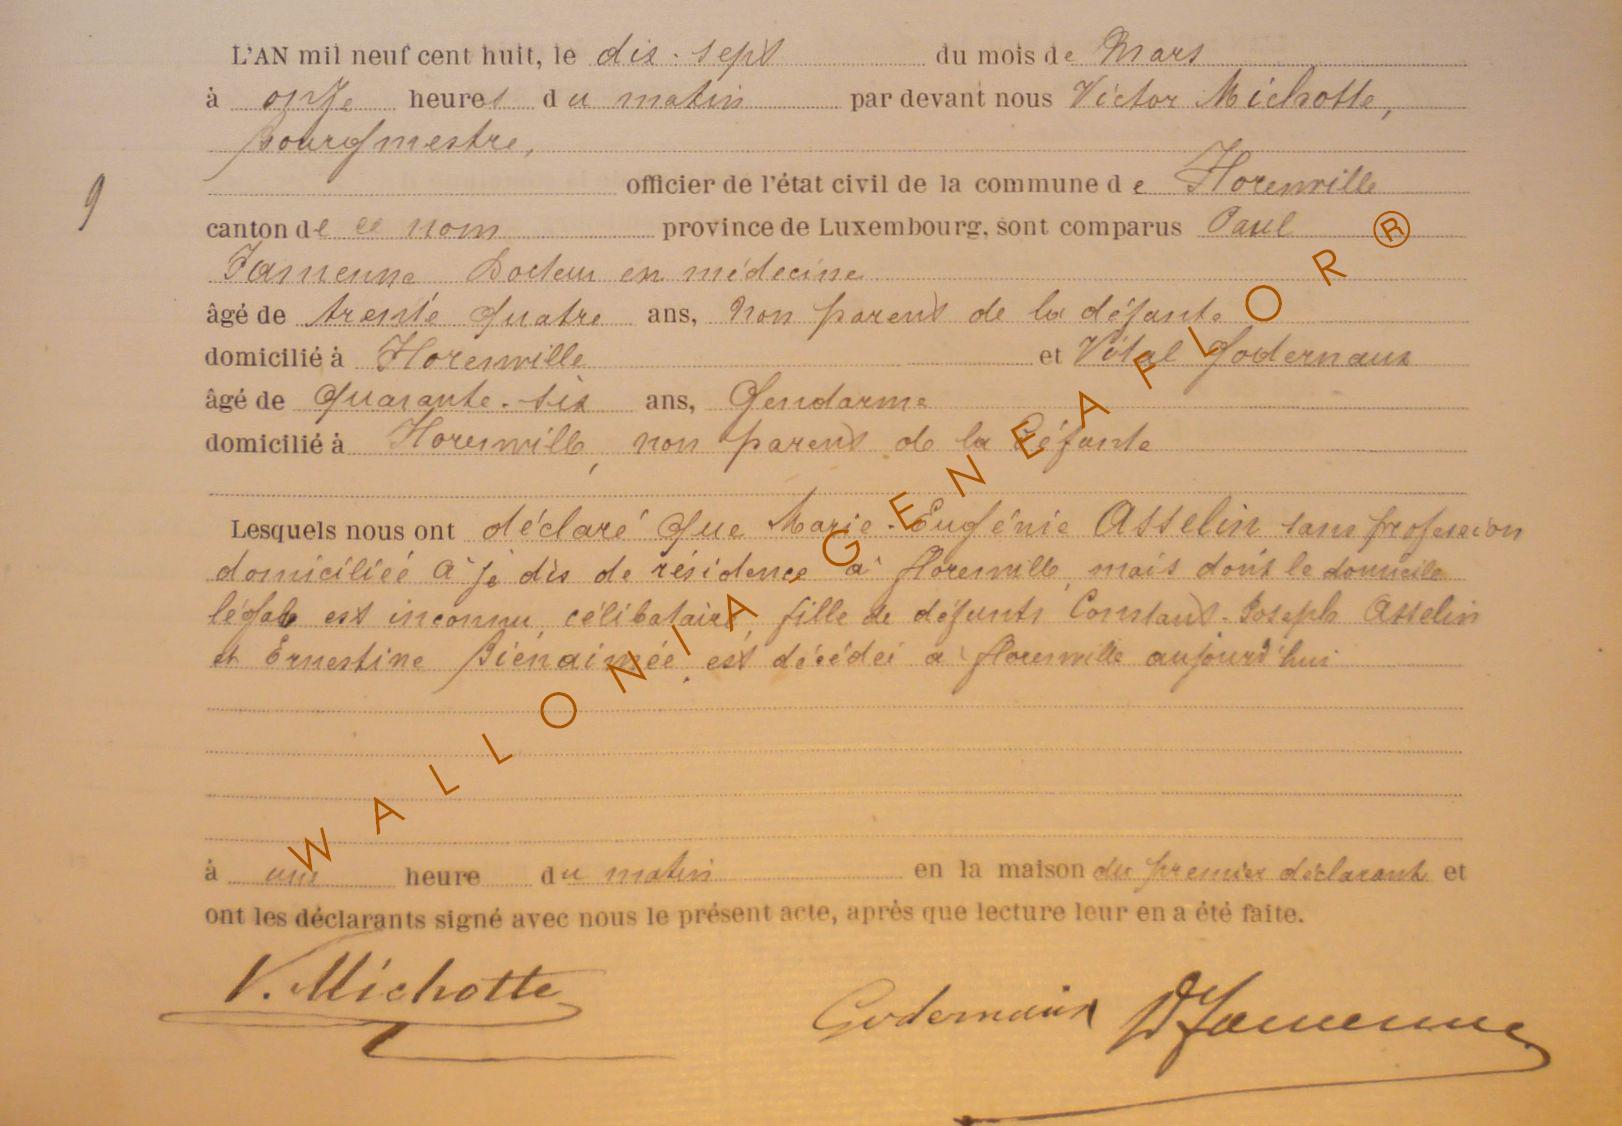 L'AN mil neuf cent huit, le dix-sept du mois de Mars
à onze heures du matin par devant nous Victor Michotte,
bourgmestre,
officier de l'état civil de la commune de Florenville
9
canton de ce nom province de Luxembourg, sont comparus Paul
Famenne Docteur en médecine
âgé de trente quatre ans, non parent de la défunte
domicilié à Florenville et Vital Godernaux
âgé de quarante-six ans, Gendarme
domicilié à Florenville, non parent de la défunte
Lesquels nous ont déclaré que Marie-Eugénie Asselin sans profession
domiciliée à je dis de résidence à Florenville, mais dont le domicile
légal est inconnu, célibataire, fille de défunts Constant-Joseph Asselin
et Ernestine Bienaimée, est décédée à Florenville aujourd'hui
à une heure du matin en la maison du premier déclarant et
ont les déclarants signé avec nous le présent acte, après que lecture leur en a été faite.
V. Michotte Godernaux Dr Famenne
WALLONIA - GENEAFLOR ®